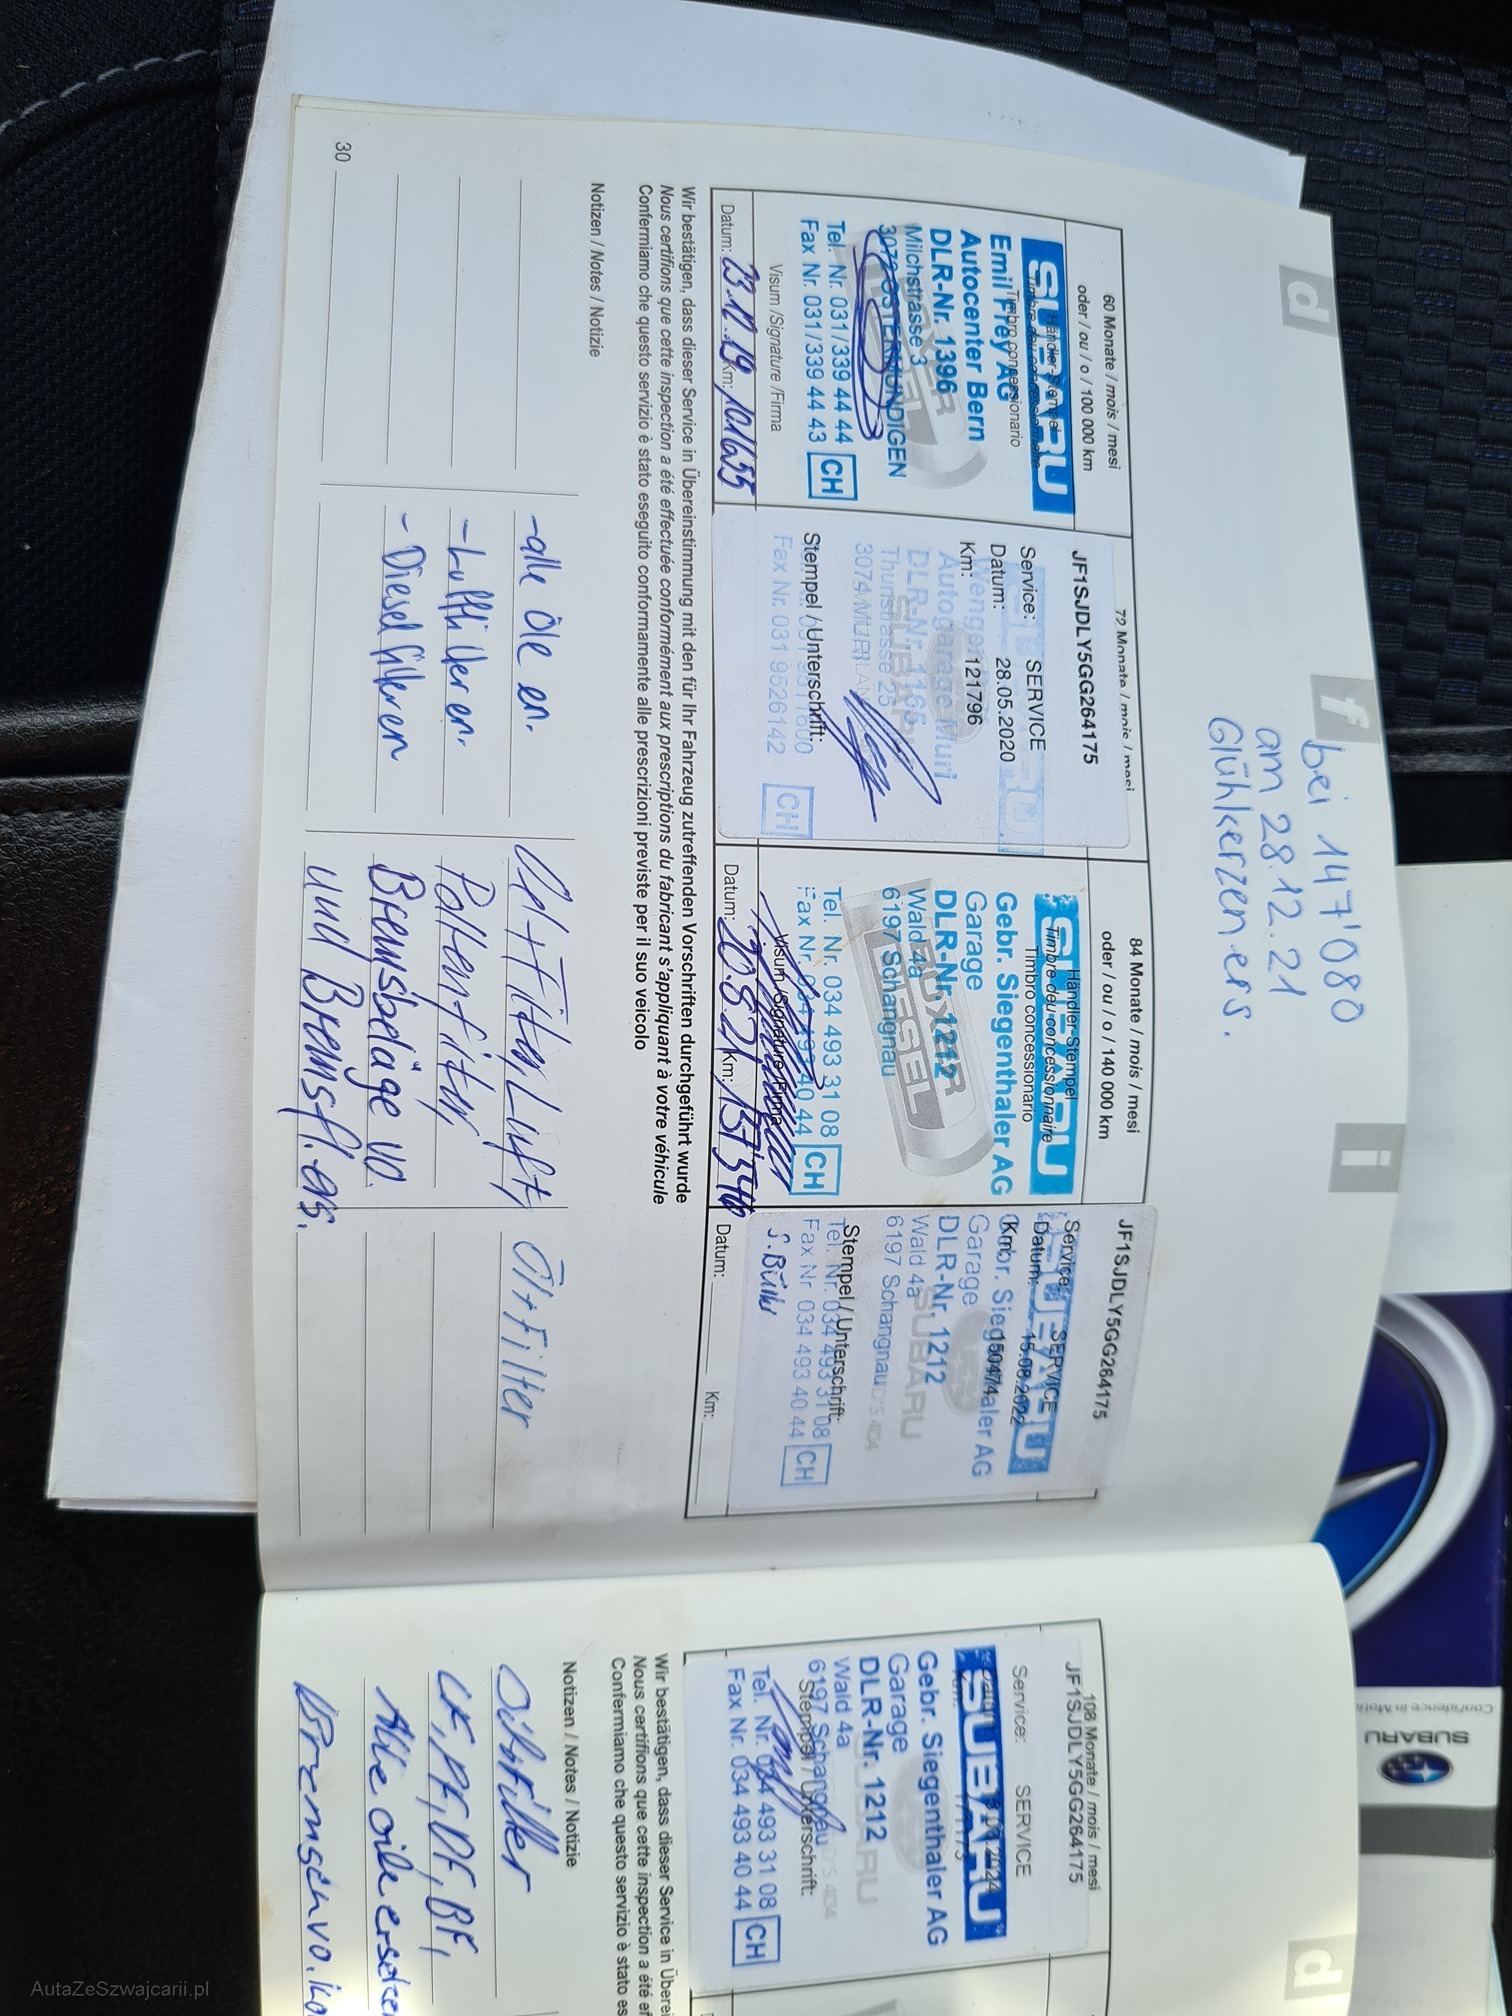 d
f
i
bei 147'080
am 28.12.21
Glühkerzen ers.
60 Monate / mois / mesi
oder / ou / o / 100 000 km
SUBARU
Händler-Stempel
Timbre du concessionnaire
Timbro concessionario
Emil Frey AG
Autocenter Bern
DLR-Nr. 1396
Milchstrasse 3
3072 OSTERMUNDIGEN
Tel. Nr. 031/339 44 44
Fax Nr. 031/339 44 43 CH
Visum /Signature /Firma
Datum: 23.12.19 Km: 101655
72 Monate / mois / mesi
JF1SJDLY5GG264175
Service: SERVICE
Datum: 28.05.2020
Km: 121796
Autogarage Muri
DLR-Nr. 1165
Thunstrasse 25
3074 MURI
Stempel / Unterschrift:
Fax Nr. 031 9526142 CH
84 Monate / mois / mesi
oder / ou / o / 140 000 km
SUBARU
Händler-Stempel
Timbre du concessionnaire
Timbro concessionario
Gebr. Siegenthaler AG
Garage
DLR-Nr. 1212
Wald 4a
6197 Schangnau
BOXER
DIESEL
Tel. Nr. 034 493 31 08
Fax Nr. 034 493 40 44 CH
Visum /Signature /Firma
Datum: 20.8.21 Km:
JF1SJDLY5GG264175
Service: SERVICE
Datum: 15.08.2022
Km:
Gebr. Siegenthaler AG
Garage
DLR-Nr. 1212
Wald 4a
6197 Schangnau
SUBARU
Stempel / Unterschrift:
Tel. Nr. 034 493 31 08
Fax Nr. 034 493 40 44 CH
Datum: Km:
Wir bestätigen, dass dieser Service in Übereinstimmung mit den für Ihr Fahrzeug zutreffenden Vorschriften durchgeführt wurde
Nous certifions que cette inspection a été effectuée conformément aux prescriptions du fabricant s'appliquant à votre véhicule
Confermiamo che questo servizio è stato eseguito conformamente alle prescrizioni previste per il suo veicolo
Notizen / Notes / Notizie
-alle Öle en.
-Luftfilter en.
-Dieselfilter en
Öl+Filter, Luft,
Pollenfilter,
Bremsbeläge vo.
und Bremsfl. ers.
Öl+Filter
30
d
108 Monate / mois / mesi
JF1SJDLY5GG264175
Service: SERVICE
SUBARU
Gebr. Siegenthaler AG
Garage
DLR-Nr. 1212
Wald 4a
6197 Schangnau
Stempel / Unterschrift:
Tel. Nr. 034 493 31 08
Fax Nr. 034 493 40 44 CH
Wir bestätigen, dass dieser Service in Überei
Nous certifions que cette inspection a été ef
Confermiamo che questo servizio è stato es
Notizen / Notes / Notizie
LF, PF, DF, BF,
Alle Öle ersetzen
SUBARU
Confidence in Motion
AutaZeSzwajcarii.pl